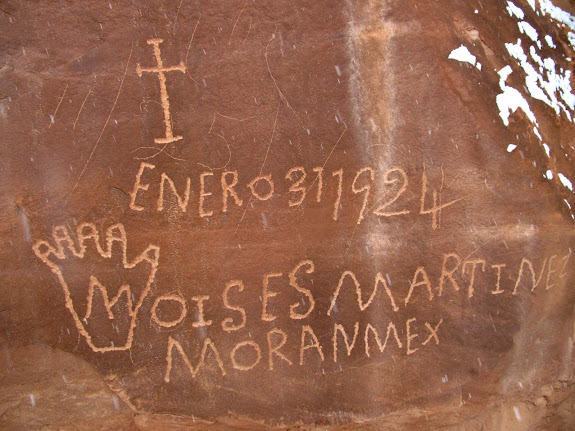 ENERO 31 1924
MOISES MARTINEZ
MORAN MEX